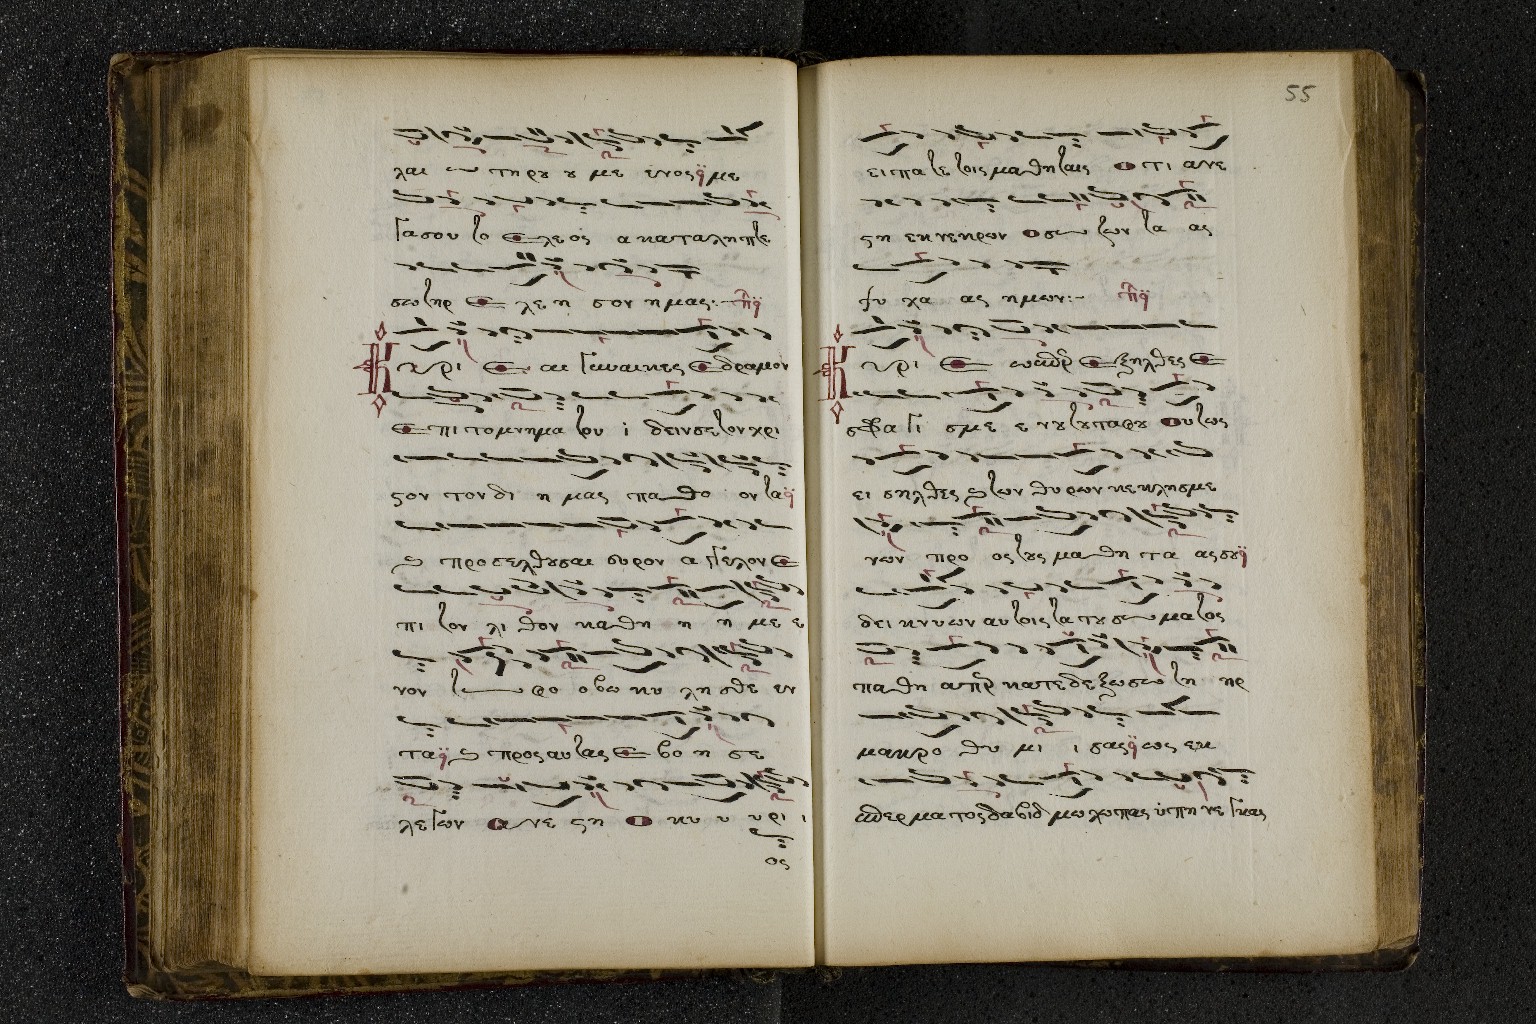 λαι ω τηρου ου με ενος με
γα σου το Ελεος ακαταληπτε
σωτηρ Ελεησον ημας:
Κυριε αι γυναικες Εδραμον
Επι το μνημα του ιδειν σε τον χρι
ςον τον δι ημας παθο ον τα
προσελθουσαι ευρον αγγελον Ε
πι τον λιθον καθη η η με ε
νον τω φο οβω κυ λησθε εν
τα προς αυτας Εβοησε
λεγων Ανεςη Ο κυ υ υρι ι
ος
55
ειπατε τοις μαθηταις Οτι ανε
ςη εκ νεκρων Ο σωζων τα ας
ψυχα ας ημων:
Κυριε ωσπερ Εξηλθες Ε
σφραγισμε ενου του ταφου Ουτως
εισηλθες των θυρων κεκλησμε
νων προ ος τους μαθητα ας σου
δεικνυων αυτοις τα του σωματος
παθη απερ κατεδεξω σωτηηρ
μακροθυμι ισας ως εκ
σπερματος δαβιδ μωλωπας υπηνεγκας